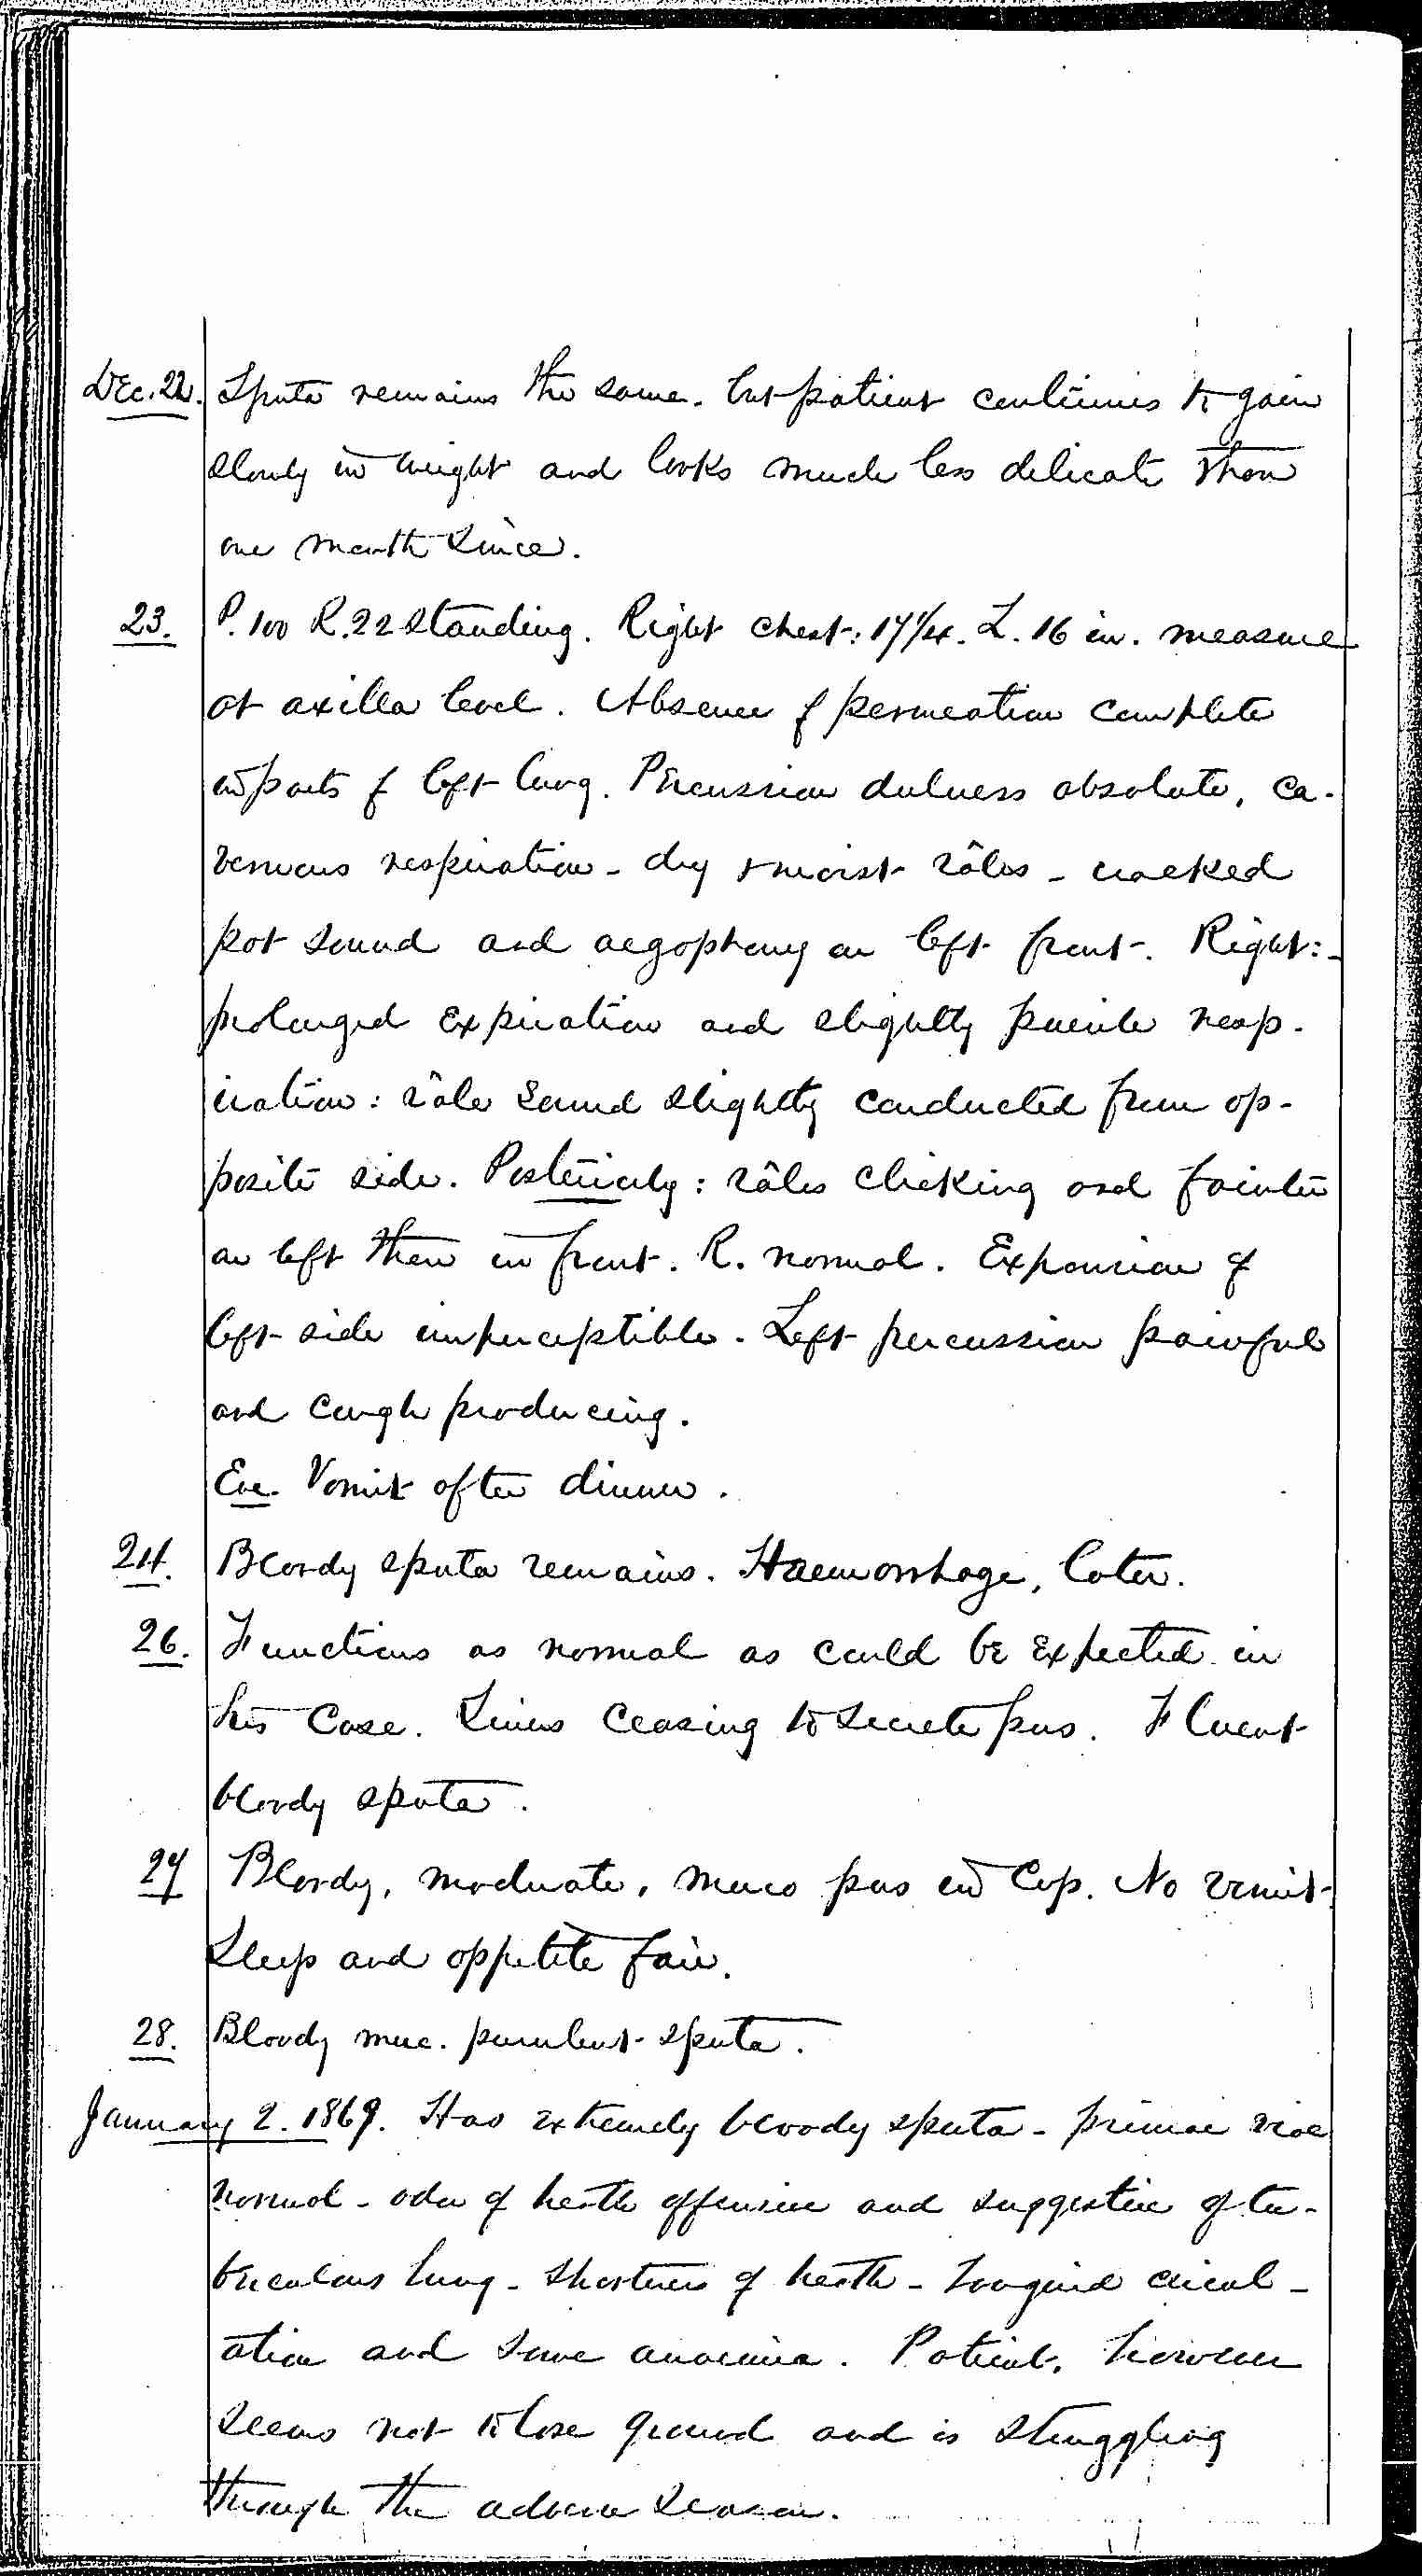 Dec. 22. Sputa remains the same. but patient continues to gain
slowly in weight and looks much less delicate than
one month since.
23. P. 100 R. 22 standing. Right chest: 17 1/4. L. 16 in. measure
at axilla level. Absence of permeation complete
in parts of left lung. Percussion dulness absolute, ca-
vernous respiration - dry & moist râles - cracked
pot sound and aegophony on left front. Right:-
prolonged expiration and slightly puerile resp-
iration: râle sound slightly conducted from op-
posite side. Posteriorly: râles clicking and fainter
on left than in front. R. normal. Expansion of
left side imperceptible. Left percussion painful
and cough producing.
Eve. Vomit after dinner.
24. Bloody sputa remains. Haemorrhage, later.
26. Functions as normal as could be expected in
his case. Sinus ceasing to secrete pus. Fluent
bloody sputa.
27 Bloody, moderate, muco pus in cup. No vomit-
Sleep and appetite fair.
28. Bloody muc. purulent sputa.
January 2. 1869. Has extremely bloody sputa - primae viae
normal - odor of breath offensive and suggestive of tu-
berculous lung - shortness of breath - languid circul-
ation and some anaemia. Patient, however
seems not to lose ground and is struggling
through the adverse season.